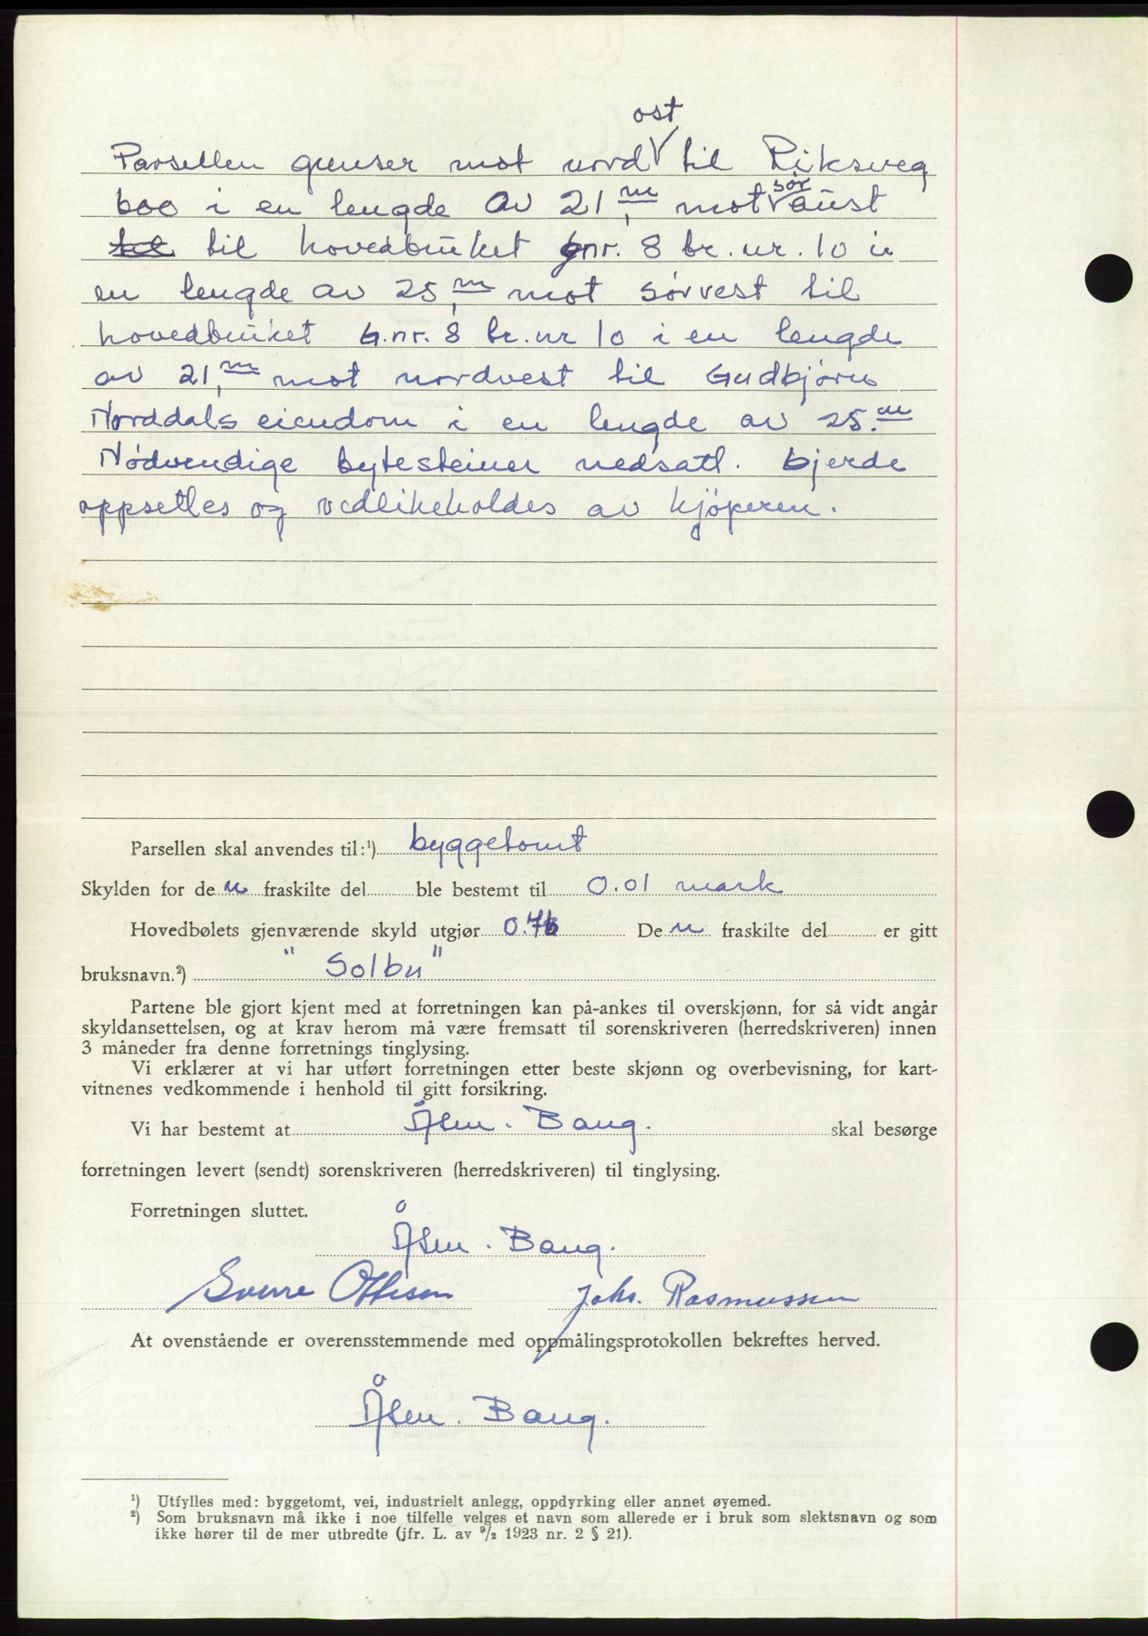 Parsellen grenser mot nord ost til Riksveg
600 i en lengde av 21,m mot sør aust
til til hovedbruket gnr. 8 br. nr. 10 i
en lengde av 25,m mot sørvest til
hovedbruket G.nr. 8 br. nr 10 i en lengde
av 21,m mot nordvest til Gudbjørns
Norddals eiendom i en lengde av 25.m
Nødvendige bytesteiner nedsatt. Gjerde
oppsettes og vedlikeholdes av kjöperen.
Parsellen skal anvendes til:¹) byggetomt
Skylden for de n fraskilte del ble bestemt til 0.01 mark
Hovedbølets gjenværende skyld utgjør De n fraskilte del er gitt
bruksnavn.²) "Solbu"
Partene ble gjort kjent med at forretningen kan på-ankes til overskjønn, for så vidt angår
skyldansettelsen, og at krav herom må være fremsatt til sorenskriveren (herredskriveren) innen
3 måneder fra denne forretnings tinglysing.
Vi erklærer at vi har utført forretningen etter beste skjønn og overbevisning, for kart-
vitnenes vedkommende i henhold til gitt forsikring.
Vi har bestemt at Bang. skal besørge
forretningen levert (sendt) sorenskriveren (herredskriveren) til tinglysing.
Forretningen sluttet.
Bang.
Sverre Ottesen Johs. Rasmussen
At ovenstående er overensstemmende med oppmålingsprotokollen bekreftes herved.
Bang.
¹) Utfylles med: byggetomt, vei, industrielt anlegg, oppdyrking eller annet øyemed.
²) Som bruksnavn må ikke i noe tilfelle velges et navn som allerede er i bruk som slektsnavn og som
ikke hører til de mer utbredte (jfr. L. av ⁹/₂ 1923 nr. 2 § 21).